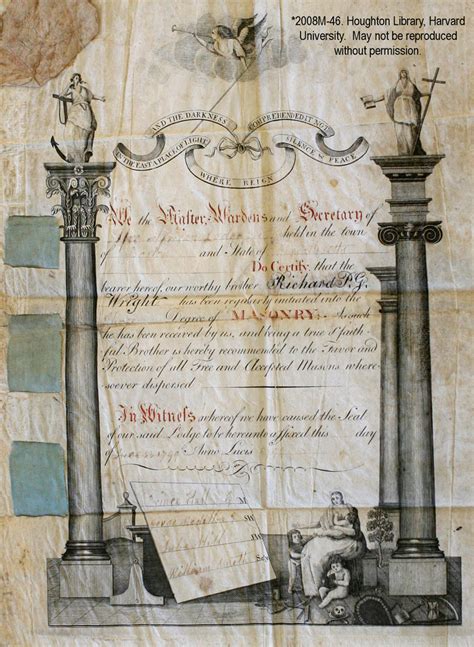 *2008M-46. Houghton Library, Harvard
University. May not be reproduced
without permission.
AND THE DARKNESS COMPREHENDED IT NOT
IN THE EAST A PLACE OF LIGHT SILENCE & PEACE
WHERE REIGN
We the Master, Wardens and Secretary of
held in the town
of and State of
Do Certify that the
bearer hereof, our worthy brother Richard P. G.
Wright has been regularly initiated into the
Degree of MASONRY: As such
he has been received by us, and being a true & faith-
ful Brother is hereby recommended to the Favor and
Protection of all Free and Accepted Masons where-
soever dispersed
In Witness whereof we have caused the Seal
of our said Lodge to be hereunto affixed this day
of Anno Lucis
Prince Hall M